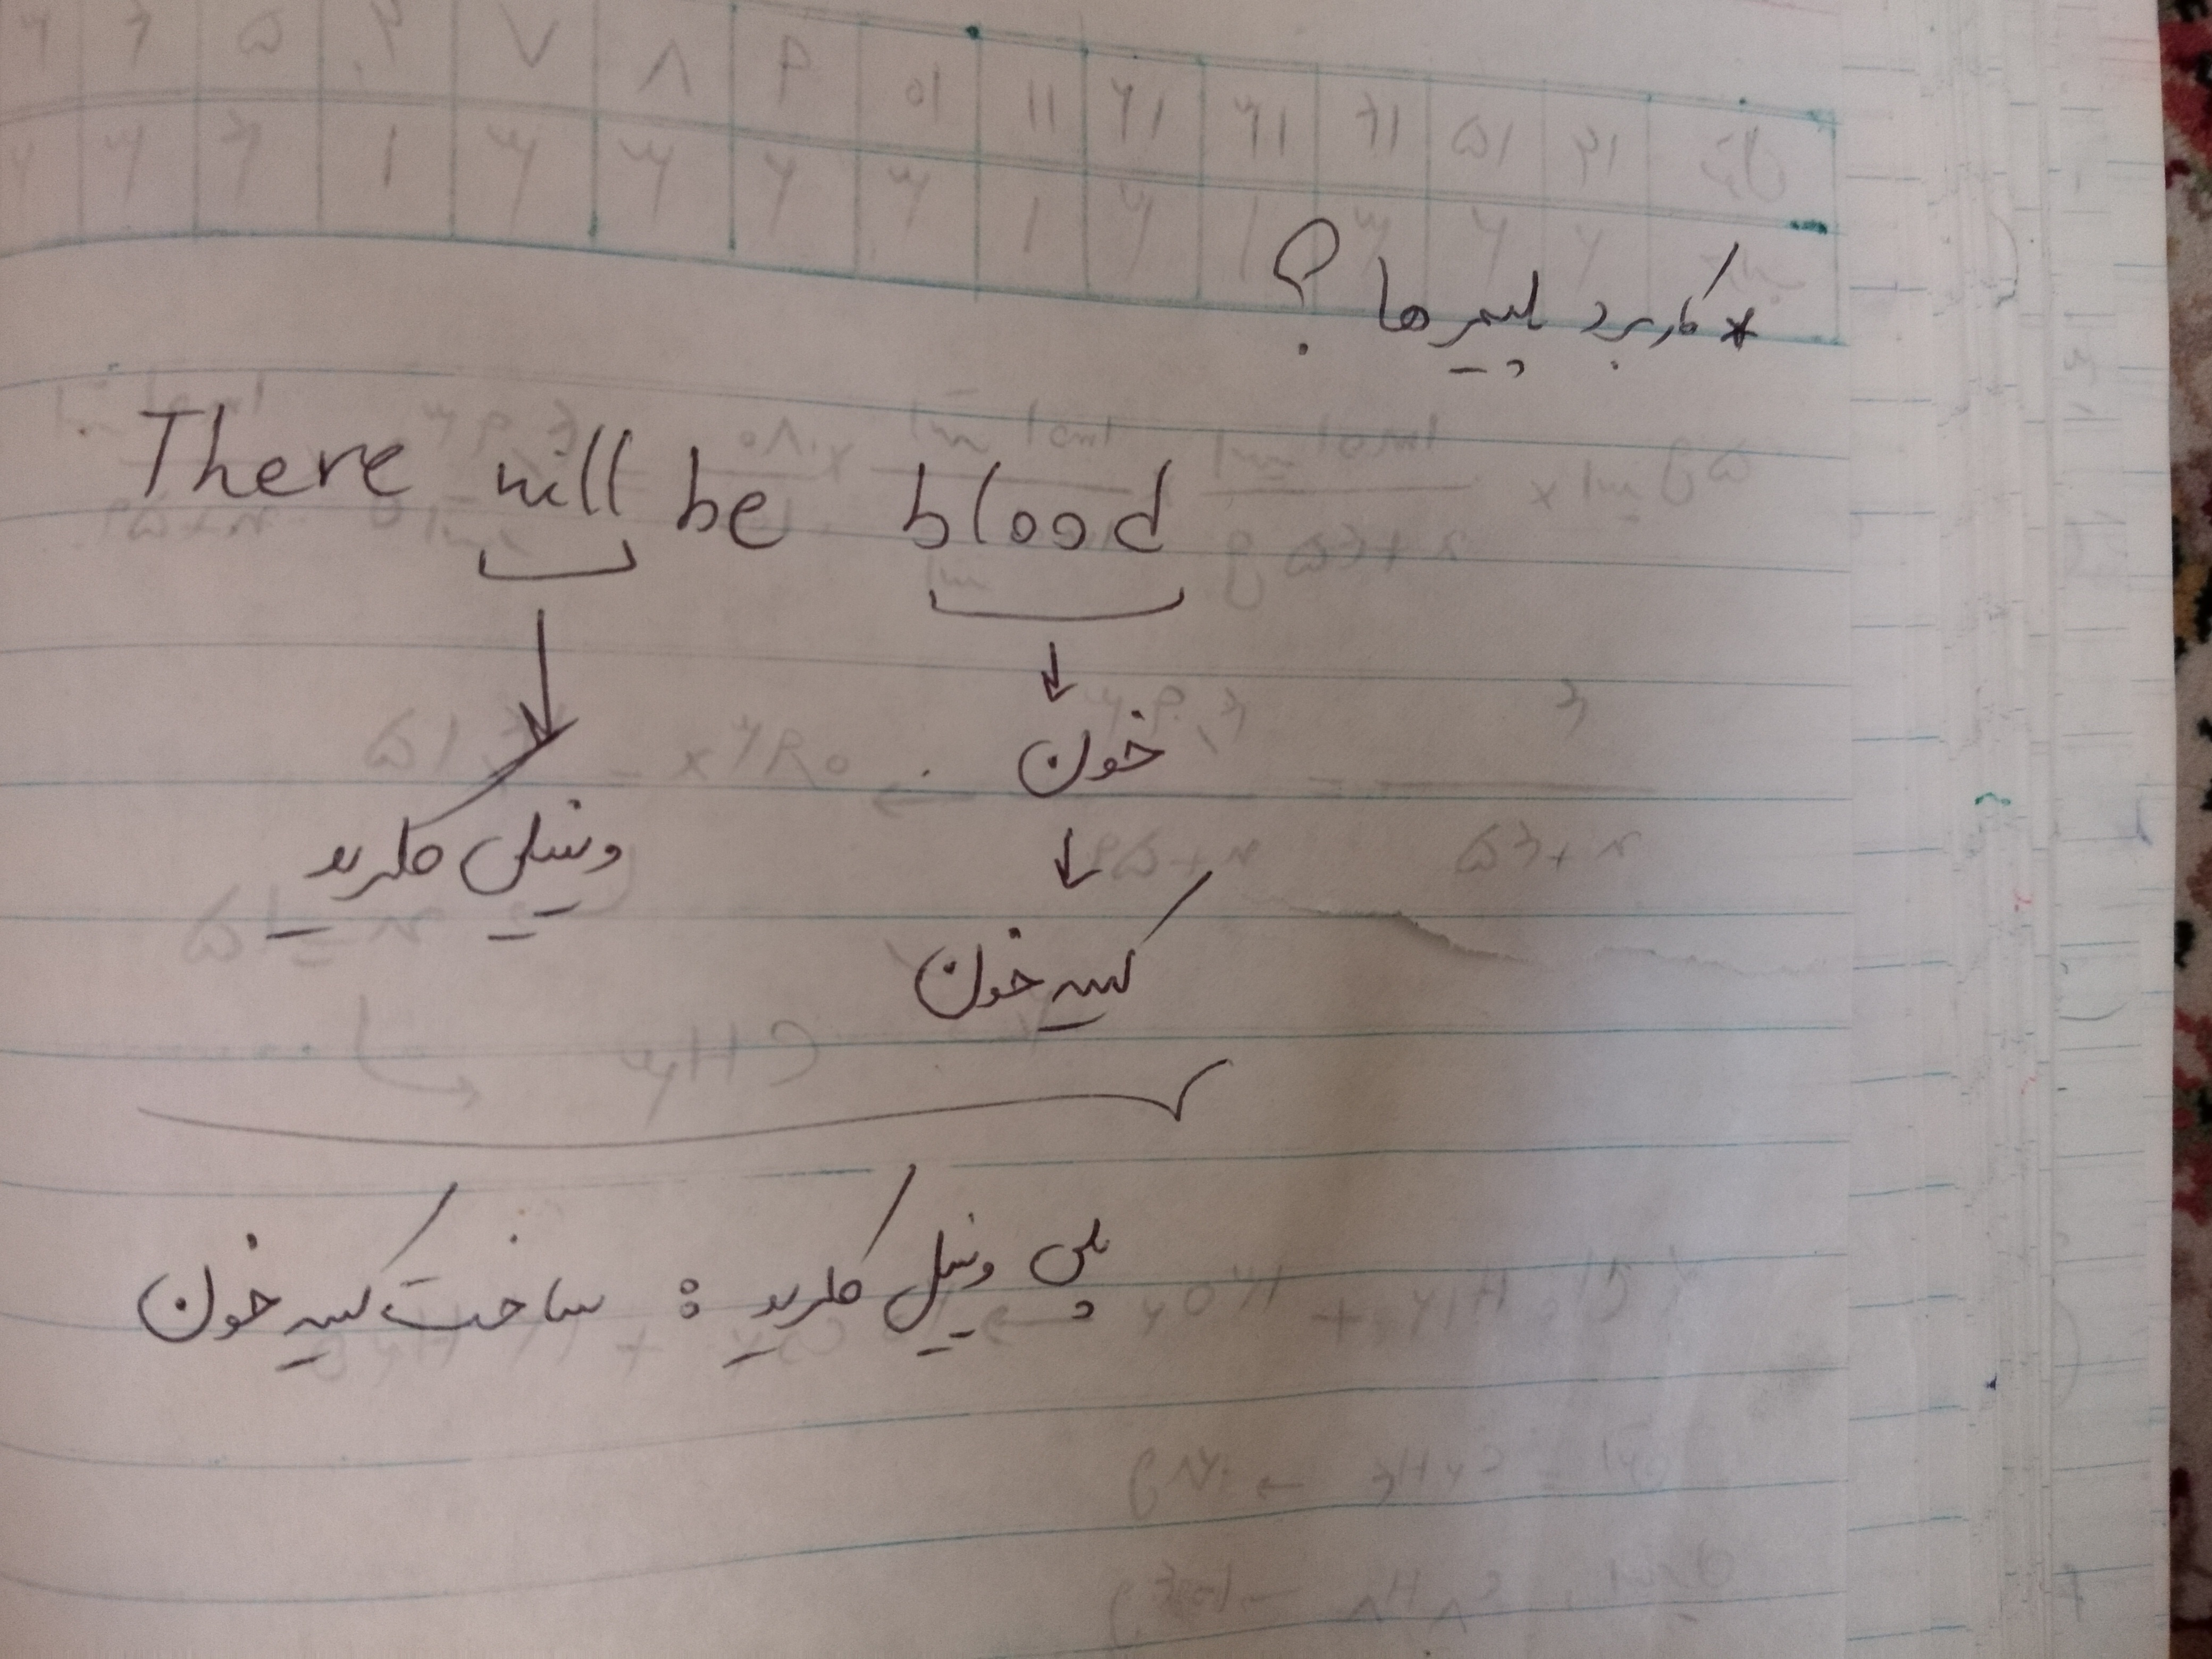 * کاربرد پلیمرها ؟
There will be blood
↓ ↓
خون
↓
وینیل کلرید
کیسه خون
پلی وینیل کلرید : ساخت کیسه خون